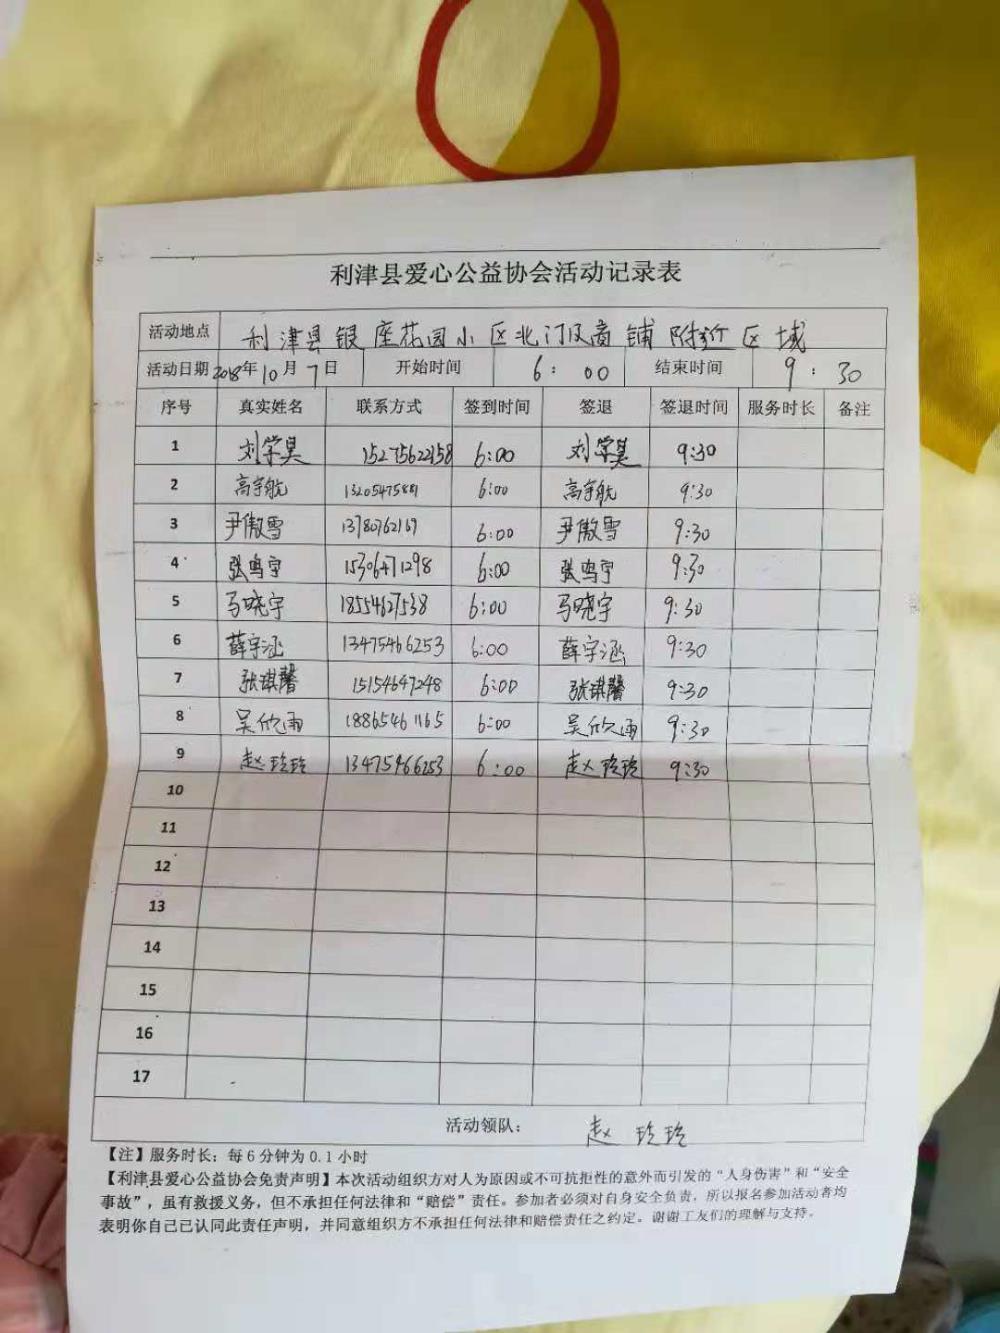 利津县爱心公益协会活动记录表
活动地点 利津县银座花园小区北门及商铺附近区域
活动日期 2018年10月7日 开始时间 6：00 结束时间 9：30
序号 真实姓名 联系方式 签到时间 签退 签退时间 服务时长 备注
1 刘学昊 15275622158 6:00 刘学昊 9:30
2 高宇航 6:00 高宇航 9:30
3 尹傲雪 6:00 尹傲雪 9:30
4 张鸣宇 15306471298 6:00 张鸣宇 9:30
5 马晓宇 18554627538 6:00 马晓宇 9:30
6 薛宇涵 13475466253 6:00 薛宇涵 9:30
7 张琪馨 15154647248 6:00 张琪馨 9:30
8 吴欣雨 18865461165 6:00 吴欣雨 9:30
9 赵玲玲 13475466253 6:00 赵玲玲 9:30
10
11
12
13
14
15
16
17
活动领队： 赵玲玲
【注】服务时长：每6分钟为0.1小时
【利津县爱心公益协会免责声明】本次活动组织方对人为原因或不可抗拒性的意外而引发的“人身伤害”和“安全
事故”，虽有救援义务，但不承担任何法律和“赔偿”责任。参加者必须对自身安全负责，所以报名参加活动者均
表明你自己已认同此责任声明，并同意组织方不承担任何法律和赔偿责任之约定。谢谢工友们的理解与支持。